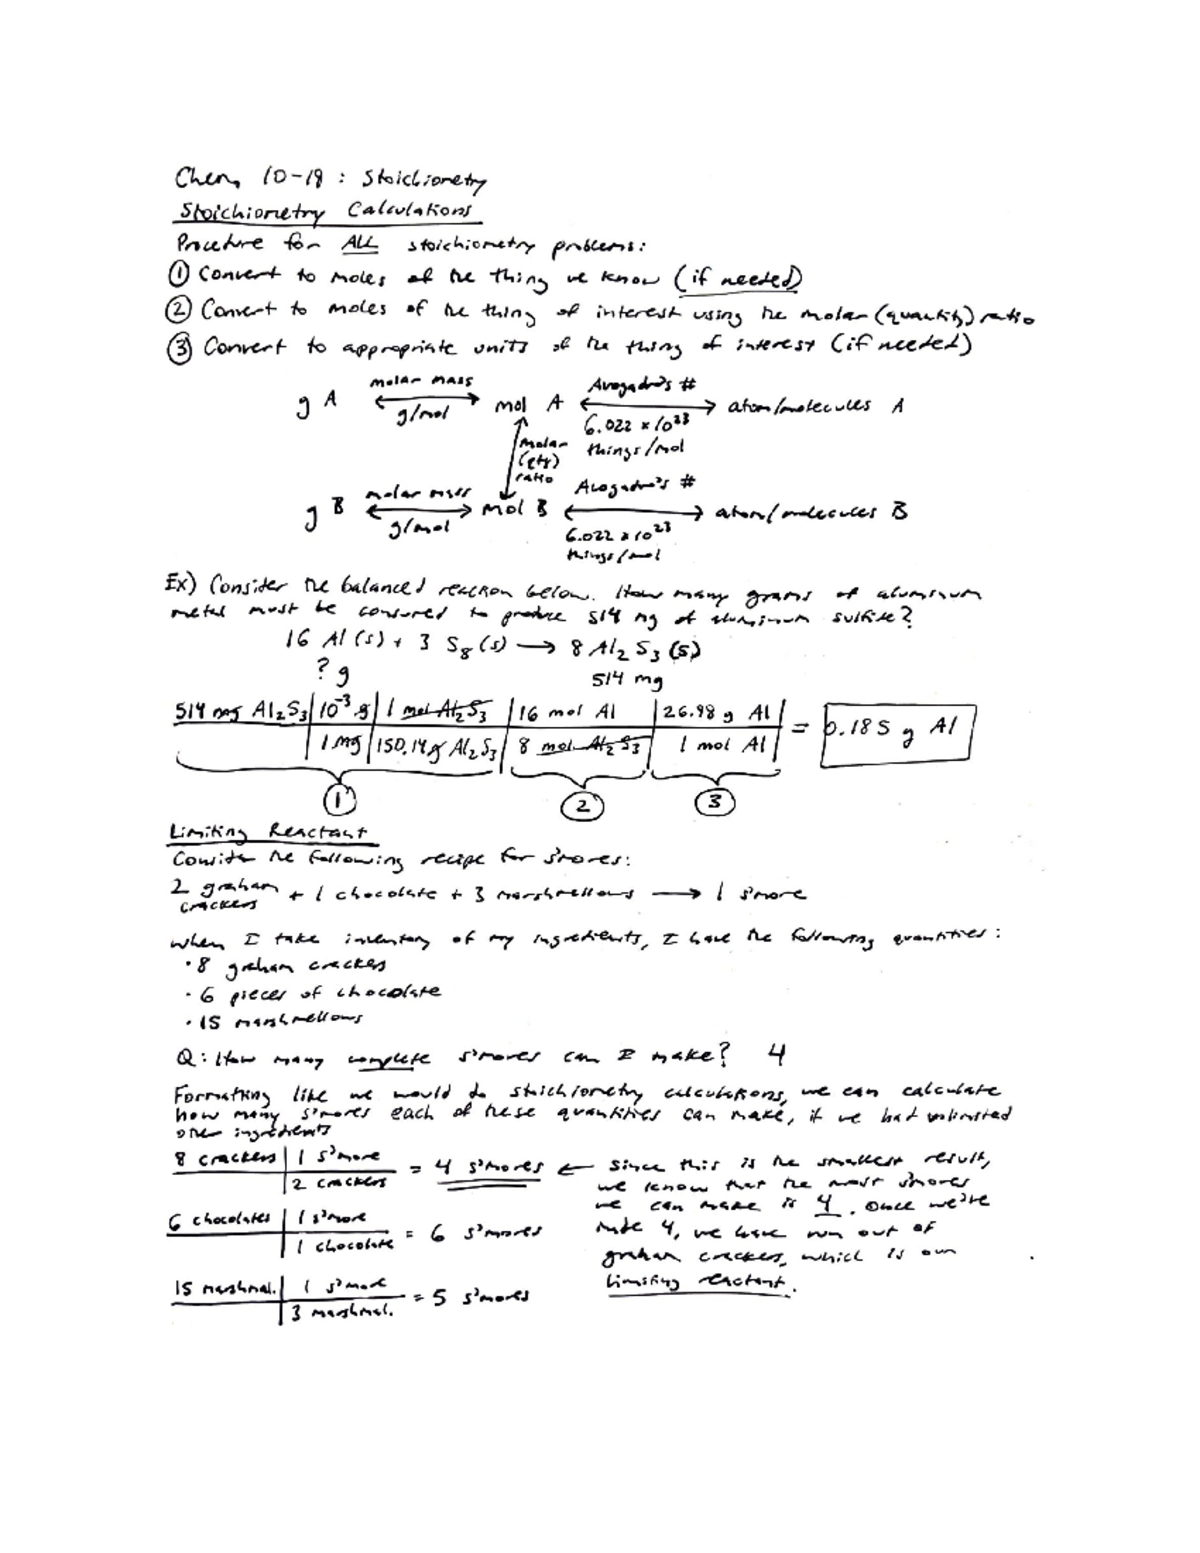 Chem 10-18 : Stoichiometry
Stoichiometry Calculations
Procedure for ALL stoichiometry problems:
① Convert to moles of the thing we know (if needed)
② Convert to moles of the thing of interest using the molar (quantity) ratio
③ Convert to appropriate units of the thing of interest (if needed)
g A ⟷ mol A ⟷ atom/molecules A
molar mass
g/mol
Avogadro's #
6.022 x 10²³
things/mol
molar
(qty)
ratio
g B ⟷ mol B ⟷ atom/molecules B
molar mass
g/mol
Avogadro's #
6.022 x 10²³
things/mol
Ex) Consider the balanced reaction below. How many grams of aluminum
metal must be consumed to produce 514 mg of aluminum sulfide?
16 Al (s) + 3 S₈ (s) → 8 Al₂S₃ (s)
? g 514 mg
514 mg Al₂S₃ | 10⁻³ g | 1 mol Al₂S₃ | 16 mol Al | 26.98 g Al | = 0.185 g Al
| 1 mg | 150.14 g Al₂S₃ | 8 mol Al₂S₃ | 1 mol Al |
① ② ③
Limiting Reactant
Consider the following recipe for s'mores:
2 graham crackers + 1 chocolate + 3 marshmellows → 1 s'more
When I take inventory of my ingredients, I have the following quantities:
• 8 graham crackers
• 6 pieces of chocolate
• 15 marshmellows
Q: How many complete s'mores can I make? 4
Formatting like we would do stoichiometry calculations, we can calculate
how many s'mores each of these quantities can make, if we had unlimited
other ingredients
8 crackers | 1 s'more
| 2 crackers = 4 s'mores ← since this is the smallest result,
we know that the most s'mores
we can make is 4. Once we've
made 4, we have run out of
graham crackers, which is our
limiting reactant.
6 chocolates | 1 s'more
| 1 chocolate = 6 s'mores
15 marshmal. | 1 s'more
| 3 marshmal. = 5 s'mores